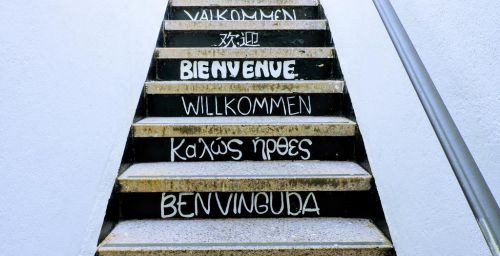 VALKOMMEN
欢迎
BIENVENUE
WILLKOMMEN
Καλώς ήρθες
BENVINGUDA